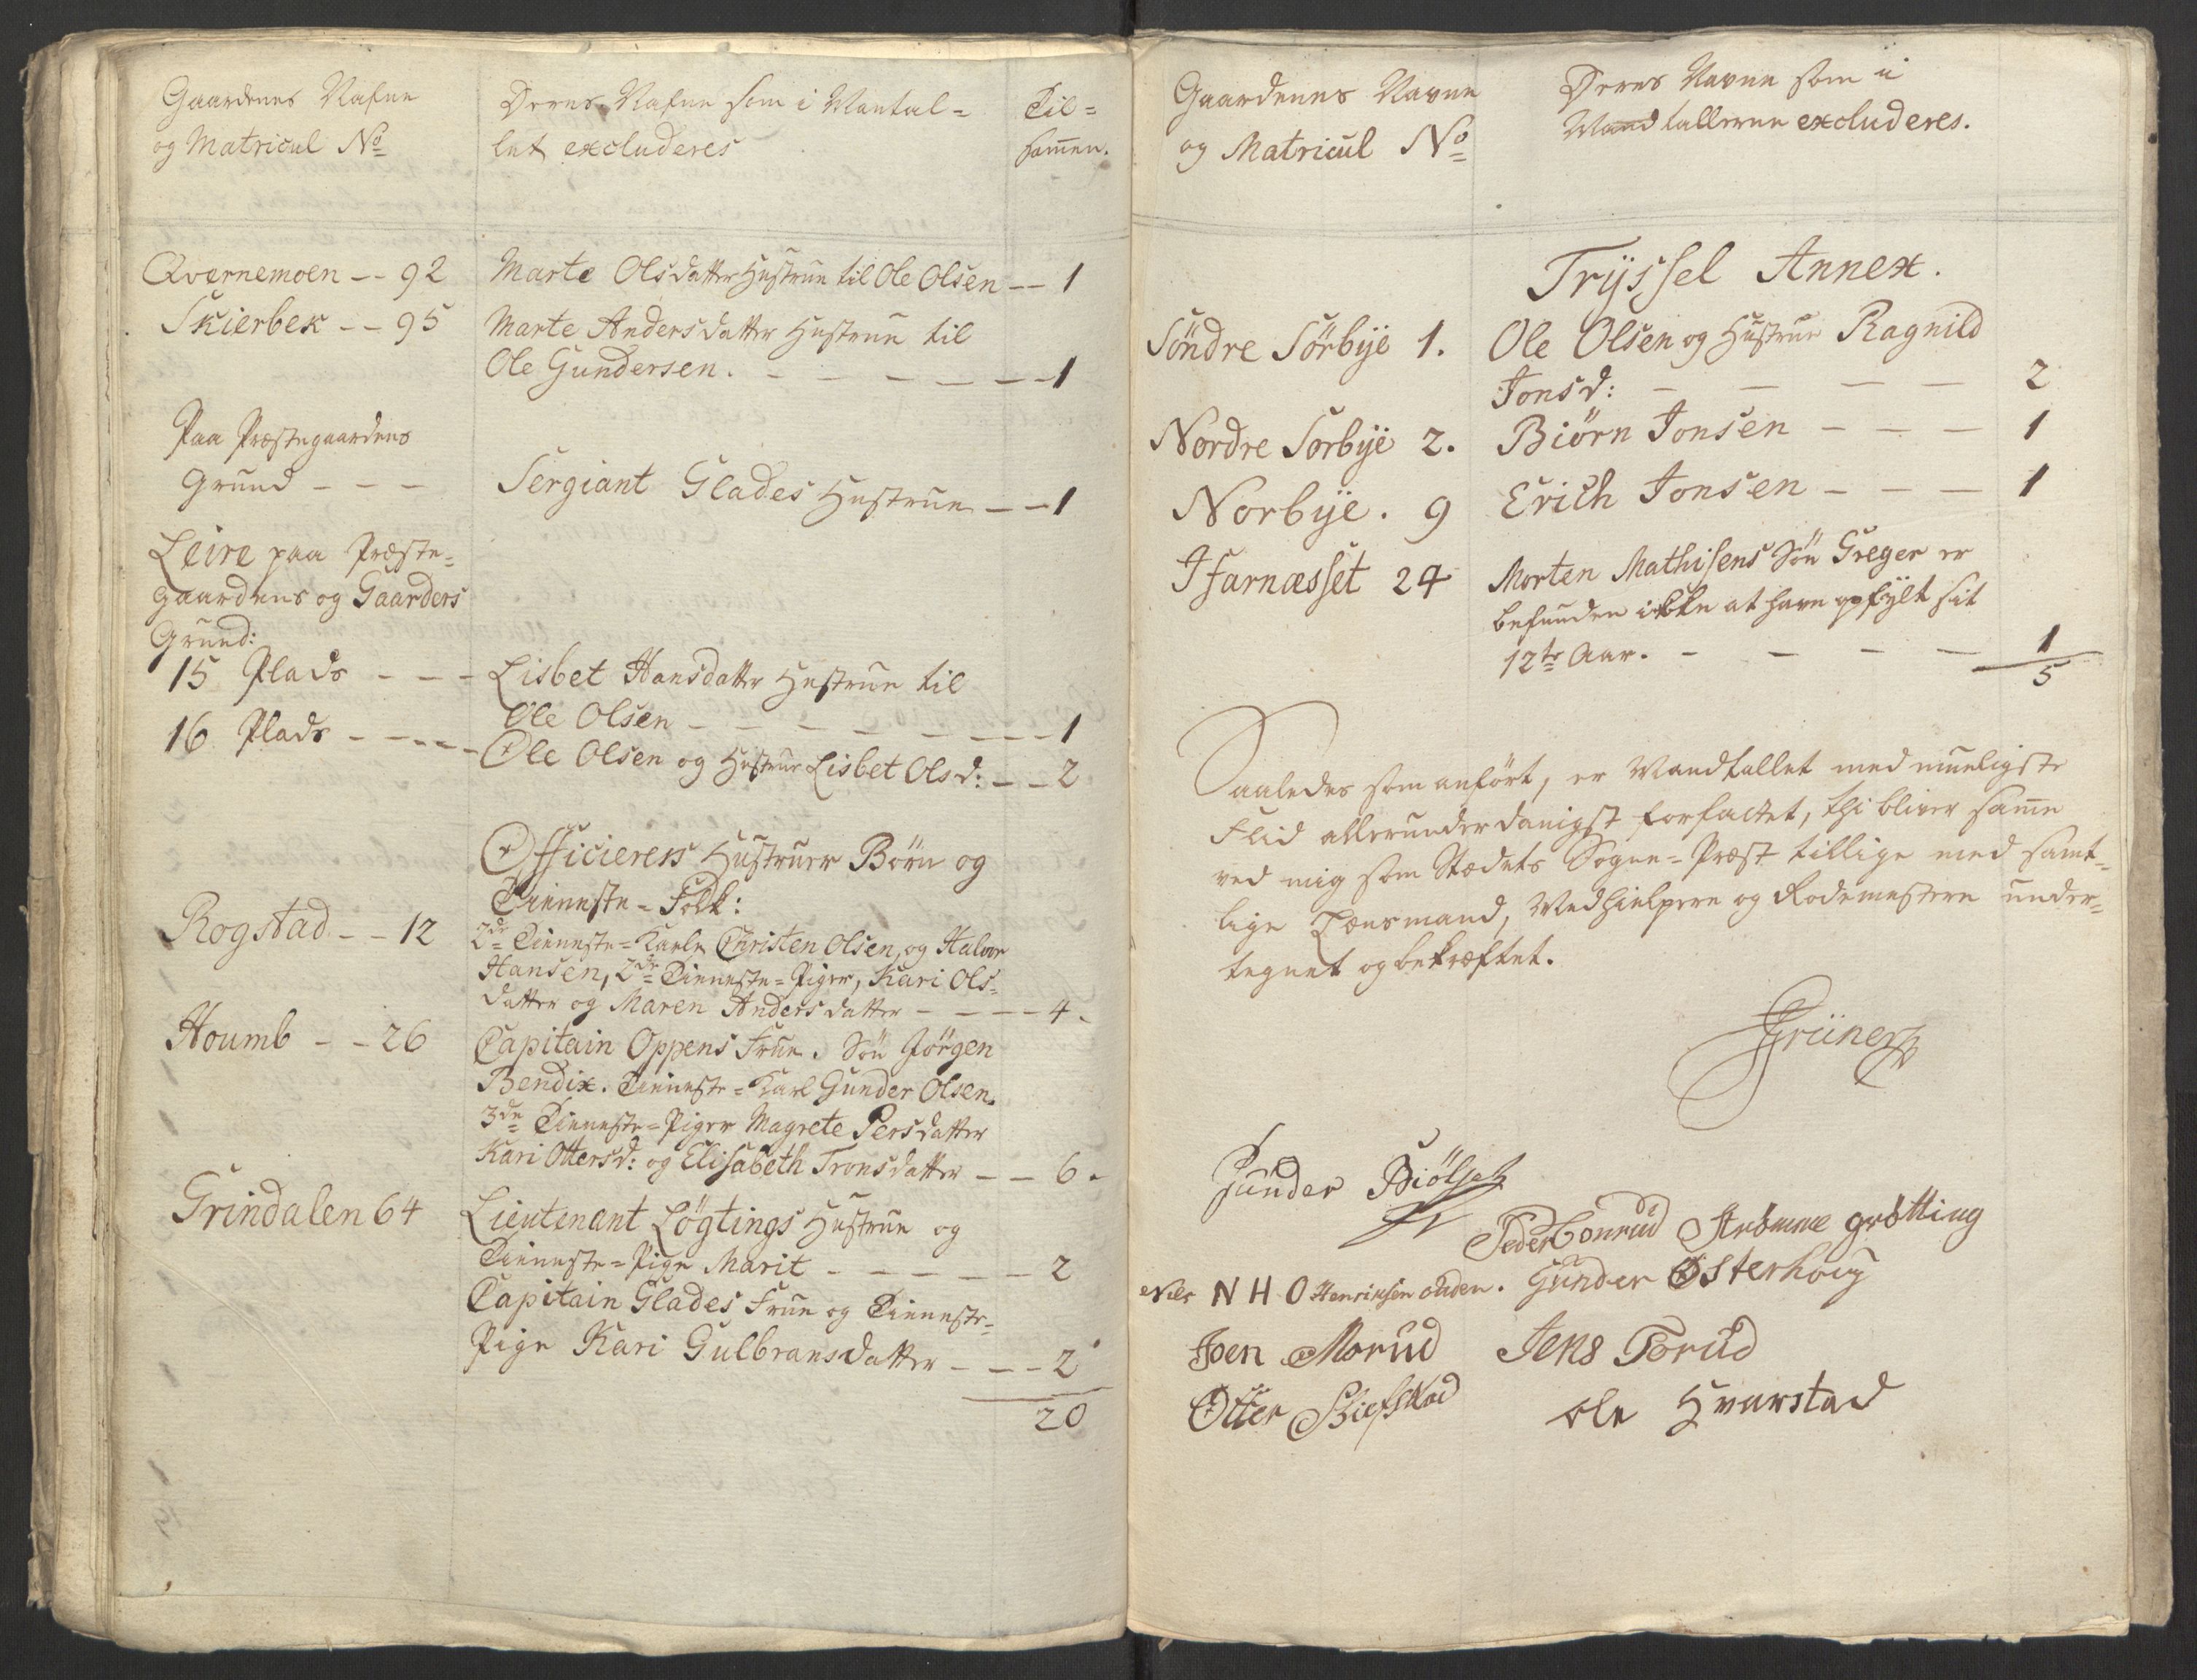 Gaardenes Nafne
og Matricul No
Deres Nafne som i Mantal=
let excluderes
Til=
sam̄en.
Qvernemoen -- 92 Marte Olsdatter Hustrue til Ole Olsen -- 1
Skierbek -- 95 Marte Andersdatter Hustrue til
Ole Gundersen. - - - - - -- 1
Paa Præstegaardens
Grund - - - Sergiant Glades Hustrue -- 1
Leire paa Præste=
gaardens og Gaarders
Grund:
15 Plads - - - Lisbet Hansdatter Hustrue til
Ole Olsen - - - - - - - - 1
16 Plads - - - - - Ole Olsen og Hustrue Lisbet Olsd: -- 2
Officierers Hustruer Børn og
Tieneste=Folk:
Rogstad -- 12 2de Tieneste=Karle Christen Olsen, og Halvor
Hansen, 2de Tieneste=Piger, Kari Ols=
datter og Maren Andersdatter - - - - 4.
Houmb -- 26 Capitain Oppens Frue. Søn Jørgen
Bendix. Tieneste=Karl Gunder Olsen.
3de Tieneste=Piger Magrete Persdatter
Kari Ottersd: og Elisabeth Tronsdatter -- 6.
Grindalen 64 Lieutenant Løgtings Hustrue og
Tieneste=Pige Marit - - - - - 2
Capitain Glades Frue og Tieneste=
Pige Kari Gulbransdatter - - - 2
20
Gaardenes Navne
og Matricul No
Deres Navne som ii
Mandtallerne excluderes.
Trÿssel Annex.
Söndre Sörbÿe 1. Ole Olsen og Hustrue Ragnild
Jonsd: - - - - 2
Nordre Sorbÿe 2. Biörn Jonsen - - - 1
Norbÿe. 9 Erich Jonsen - - - 1
Ifarnæsset 24 Morten Mathisens Sön Greger er
befunden ikke at have opfÿlt sit
12te Aar. - - - - 1
5
Saaledes som anfört, er Mandtallet med mueligste
Flid allerunderdanigst forfattet, thi bliver sam̄e
ved mig som Stædets Sogne=Præst tillige med samt=
lige Lensmand, Medhielpere og Rodemestere under=
tegnet og bekræftet.
Grüner
Gunder Biölset
Peder Conrud Strömme grøtting
Nils N H O Henriksen oden. Gunder Østerhoug
Joen Morud Jens Torud
Otter Skiefstad Ole Hvarstad